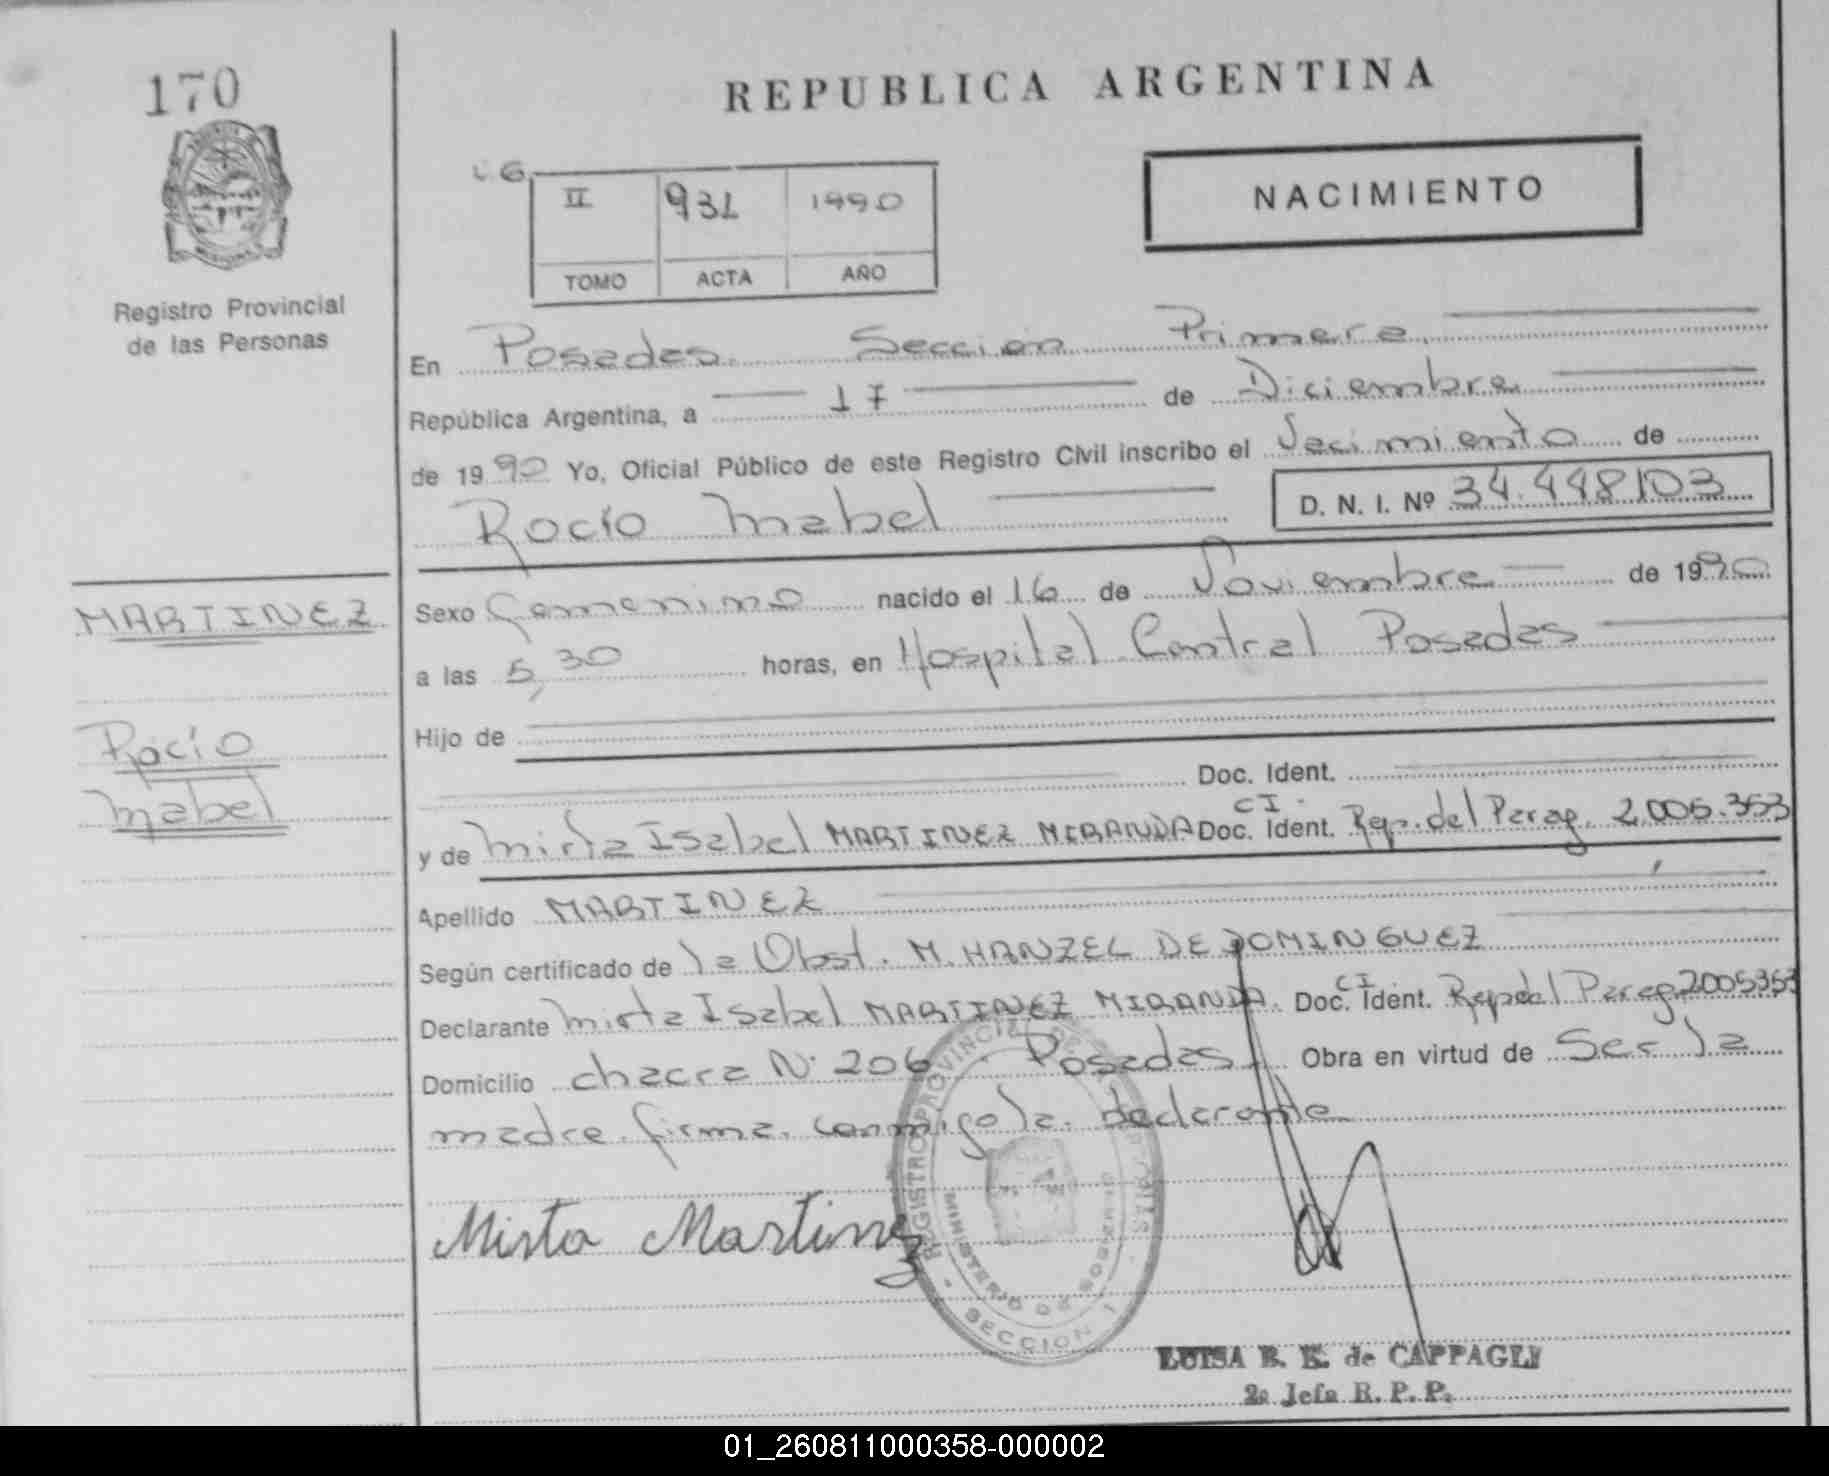 170
REPUBLICA ARGENTINA
NACIMIENTO
II 931 1990
TOMO ACTA AÑO
Registro Provincial
de las Personas
En Posadas. Sección Primera
República Argentina, a 17 de Diciembre
de 1990 Yo, Oficial Público de este Registro Civil inscribo el Nacimiento de
Rocío Mabel D. N. I. Nº 34.448103
MARTINEZ
Rocío
Mabel
Sexo Femenino nacido el 16 de Noviembre de 1990
a las 5,30 horas, en Hospital Central Posadas
Hijo de
Doc. Ident.
y de Mirta Isabel MARTINEZ MIRANDA Doc. Ident. CI. Rep. del Parag. 2.005.353
Apellido MARTINEZ
Según certificado de la Obst. M. HANZEL DE DOMINGUEZ
Declarante Mirta Isabel MARTINEZ MIRANDA. Doc. Ident. CI Rep del Parag 2005353
Domicilio chacra Nº 206 Posadas. Obra en virtud de Ser la
madre. firma. conmigo la. declarante
Mirta Martinez
REGISTRO PROVINCIAL DE LAS PERSONAS
MINISTERIO DE GOBIERNO
SECCION 1
LUISA B. K. de CAPPAGLI
2a Jefa R. P. P.
01_260811000358-000002